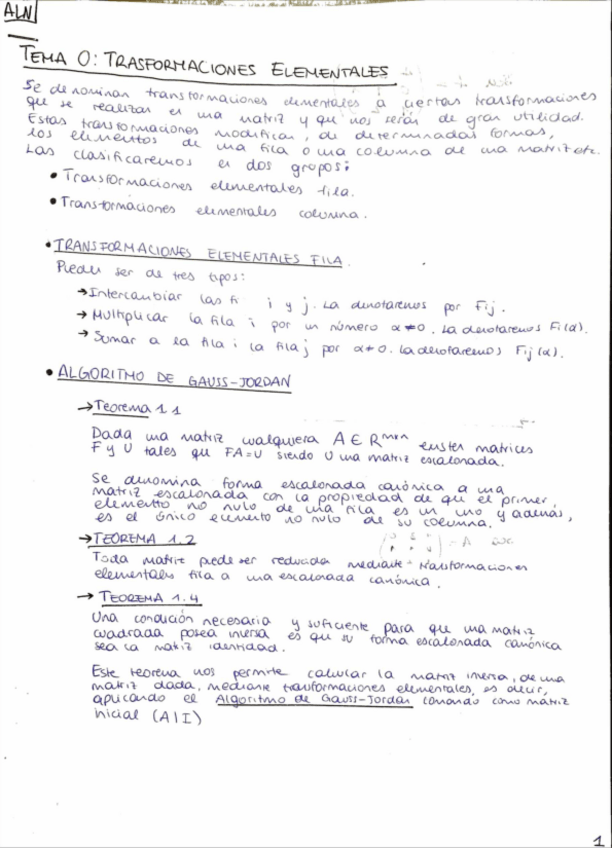 ALN
TEMA 0: TRASFORMACIONES ELEMENTALES
Se denominan transformaciones elementales a ciertas transformaciones
que se realizan en una matriz y que nos serán de gran utilidad.
Estas transformaciones modifican, de determinadas formas,
los elementos de una fila o una columna de una matriz etc.
Las clasificaremos en dos grupos:
• Transformaciones elementales fila.
• Transformaciones elementales columna.
• TRANSFORMACIONES ELEMENTALES FILA.
Pueden ser de tres tipos:
→ Intercambiar las fi i y j. La denotaremos por Fij.
→ Multiplicar la fila i por un número α≠0. La denotaremos Fi(α).
→ Sumar a la fila i la fila j por α≠0. La denotaremos Fij(α).
• ALGORITMO DE GAUSS-JORDAN
→ Teorema 1.1
Dada una matriz cualquiera A ∈ R^mxn existen matrices
F y U tales que FA=U siendo U una matriz escalonada.
Se denomina forma escalonada canónica a una
matriz escalonada con la propiedad de que el primer
elemento no nulo de una fila es un uno y además,
es el único elemento no nulo de su columna.
→ TEOREMA 1.2
Toda matriz puede ser reducida mediante transformaciones
elementales fila a una escalonada canónica.
→ TEOREMA 1.4
Una condición necesaria y suficiente para que una matriz
cuadrada posea inversa es que su forma escalonada canónica
sea la matriz identidad.
Este teorema nos permite calcular la matriz inversa, de una
matriz dada, mediante transformaciones elementales, es decir,
aplicando el Algoritmo de Gauss-Jordan tomando como matriz
inicial (A|I)
1